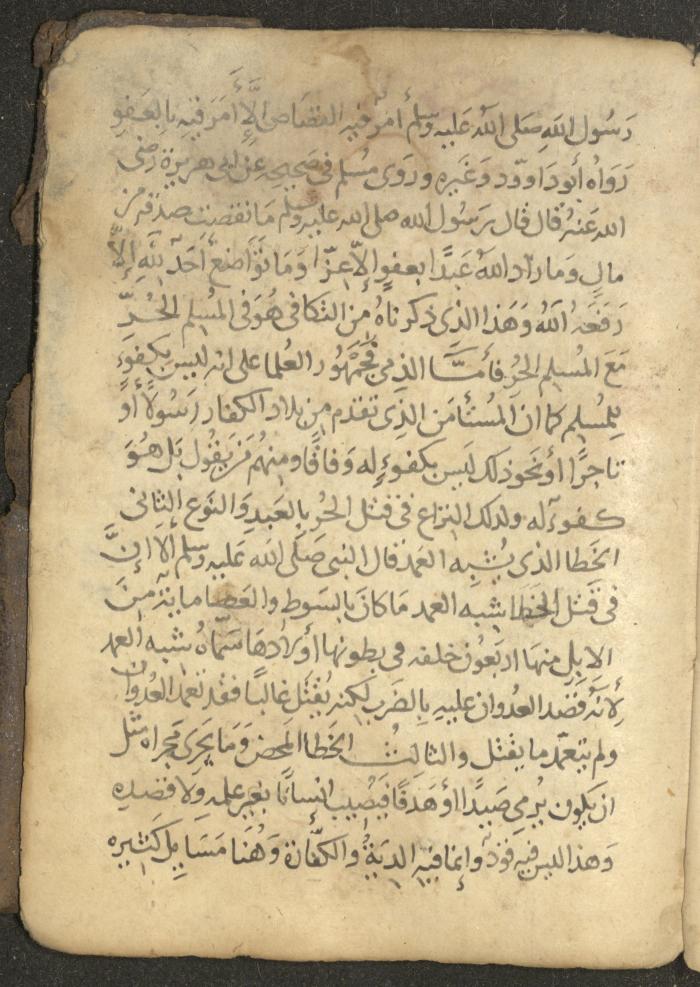 رَسُول اللهِ صَلى اللهُ عَليهِ وسَلم أمرٌ فيهِ القصَاص إلَّا أَمَرَ فيهِ بالعَفوِ
رَوَاهُ أبودَاوود وَغَيره ورَوى مُسْلم فى صَحيحِهِ عن ابى هريرة رَضى
الله عَنهُ قال قال رَسُول الله صلى الله عليه وسَلم مَا نقصَت صدقه من
مالٍ وَما زاد اللهُ عَبدًا بعفوٍ إلّا عِزّا وَمَا تَوَاضعَ أحَدٌ لِلّهِ إلَّا
رَفعَهُ اللهُ وَهَذا الذى ذكرناهُ من التكافى هُوَ فى المُسلم الحُرّ
مَعَ المُسلِم الحُر فأمَّا الذمى فجمْهُور العُلما على انه ليس بكفوء
لِلمُسلم كما ان المُسْتأمَن الذِى تقدم من بلاد الكفار رَسُولًا أَو
تاجرًا أو نَحو ذلك ليس بكفوءٍ له وفاقًا ومنهُم مَن يَقُول بَل هُوَ
كفوء له ولذلك النزاع فى قتل الحُر بالعَبدِ وَالنوع الثانى
الخطا الذى يُشبه العَمد قال النبى صَلى الله عَليه وسلم الا إنَّ
فى قتل الخطا شبه العمد مَا كان بالسَوط والعَصا مايةً منَ
الابِلِ منهَا اربَعُون خلفه فى بطونها أولادهَا سَمّاهُ شبه العمد
لِأنَّه قصد العدوان عليهِ بِالضَربِ لكنه يُقتَل غالبًا فقد تعمد العُدوان
ولم يتعمّد ما يقتل والثالثُ الخَطا المَحض وَما يَجرِى مجراه مثل
ان يكون يُرمى صَيدًا أو هَدفًا فيُصيب انسانًا بغَير علمه ولا قصده
وَهذا ليس فيه قودٌ وإنما فيهِ الديَةُ والكفّارة وَهُنا مَسَايل كثيره